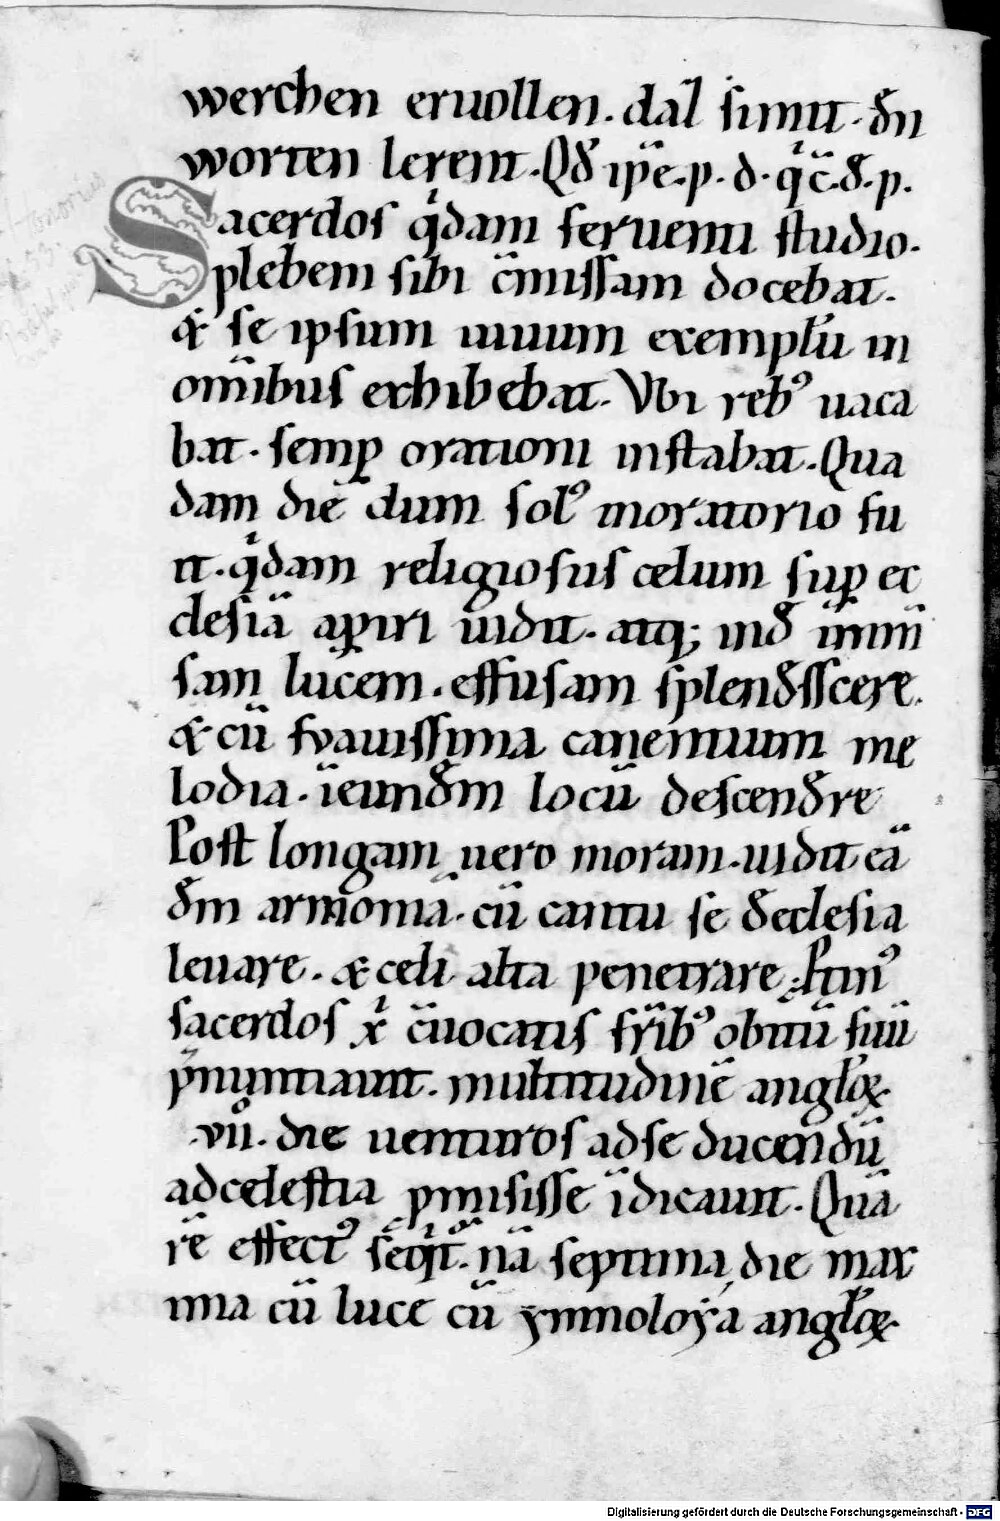 werchen eruollen. dāl simit. dn̄
worten lerent. Qd̄ ip̄e. p. d. qͥc̄. d. p.
Sacerdos qͥdam feruenti studio.
plebem sibi c̄missam docebat.
& se ipsum uiuum exemplū in
om̄ibus exhibebat. Vbi reb⁹ uaca
bat. semꝑ orationi instabat. Qua
dam diē dum sol⁹ in oratorio fu
it. qͥdam religiosus celum suꝑ ec
clesiā aꝑiri uidit. atq; ind̄ īmen
sam lucem. effusam splend̄sscere.
& cū suauissima canentium me
lodia. ī eund̄m locū descend̄re
Post longam uero moram. uidit eā
d̄m armoniā. cū cantu se d̄ eclesia
leuare. & celi alta penetrare.
sacerdos c̄uocatis fr̄ib⁹ obitū suū
p̄nuntiauit. multitudinē anglōꝝ.
.vii. die uenturos ad se ducendū
ad celestia p̄misisse īdicauit. Quā
rē effect⁹ nā septima die max
ima cū luce cū ymnoloẏa anglōꝝ.
Digitalisierung gefördert durch die Deutsche Forschungsgemeinschaft - DFG